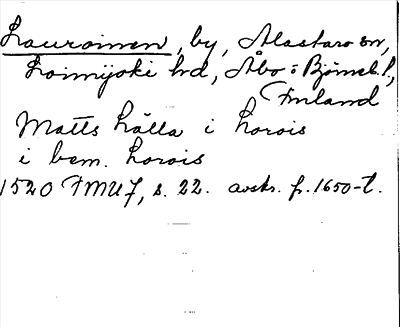 Lauroinen, by, Alastaro sn,
Loimijoki hd, Åbo o Björneb. l.,
Finland
Matts Lålla i Lorois
i bem. Lorois
1520 FMU 7, s. 22. avskr. fr. 1650-t.